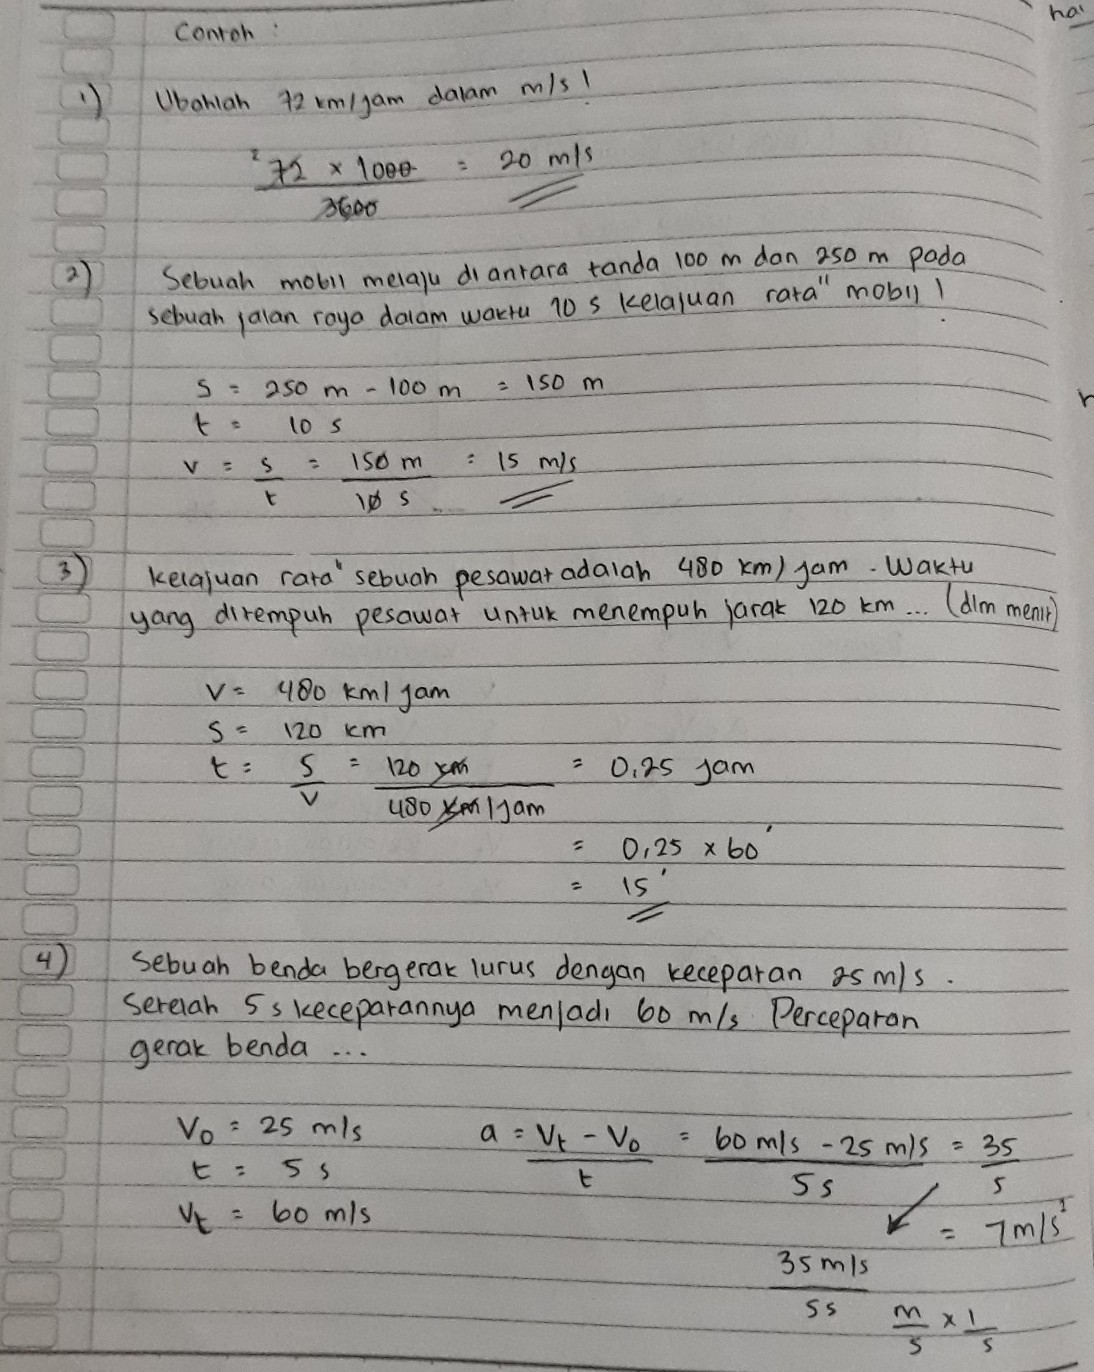 Contoh :
1) Ubahlah 72 km/jam dalam m/s !
²72 x 1000 = 20 m/s
3600
2) Sebuah mobil melaju di antara tanda 100 m dan 250 m pada
sebuah jalan raya dalam waktu 10 s kelajuan rata" mobil !
s = 250 m - 100 m = 150 m
t = 10 s
v = s = 150 m = 15 m/s
t 10 s
3) Kelajuan rata" sebuah pesawat adalah 480 km/jam. Waktu
yang ditempuh pesawat untuk menempuh jarak 120 km ... (dlm menit)
V = 480 km/jam
S = 120 km
t = S = 120 km = 0,25 jam
V 480 km/jam
= 0,25 x 60'
= 15'
4) Sebuah benda bergerak lurus dengan kecepatan 25 m/s .
Setelah 5 s kecepatannya menjadi 60 m/s. Percepatan
gerak benda ...
V₀ = 25 m/s a = Vt - V₀ = 60 m/s - 25 m/s = 35
t = 5 s t 5 s 5
Vt = 60 m/s = 7 m/s²
35 m/s
5s m x 1
s s